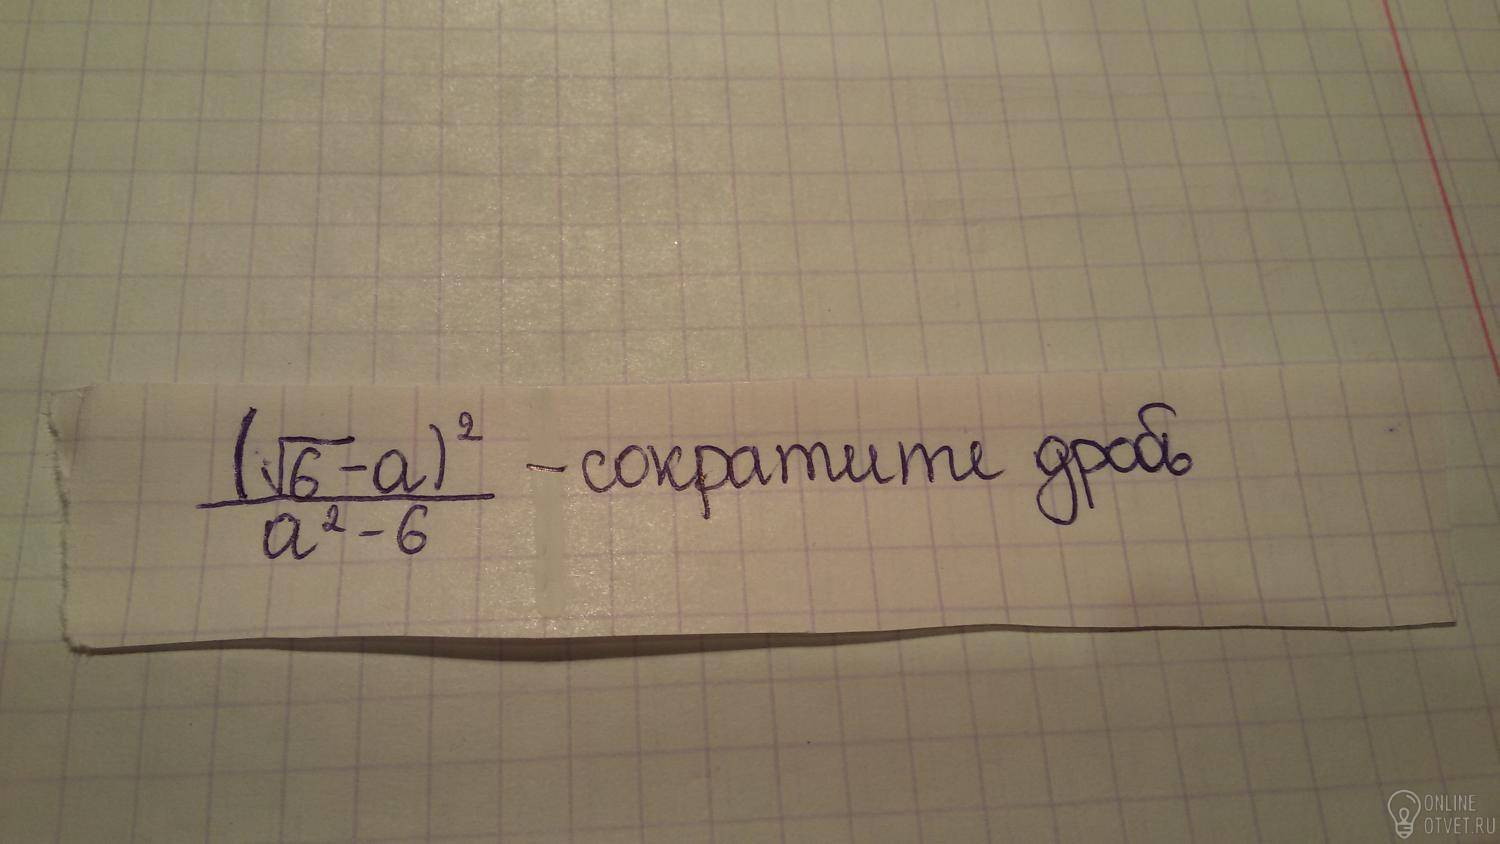 (√6-a)²/a²-6 - сократите дробь
ONLINE
OTVET.RU